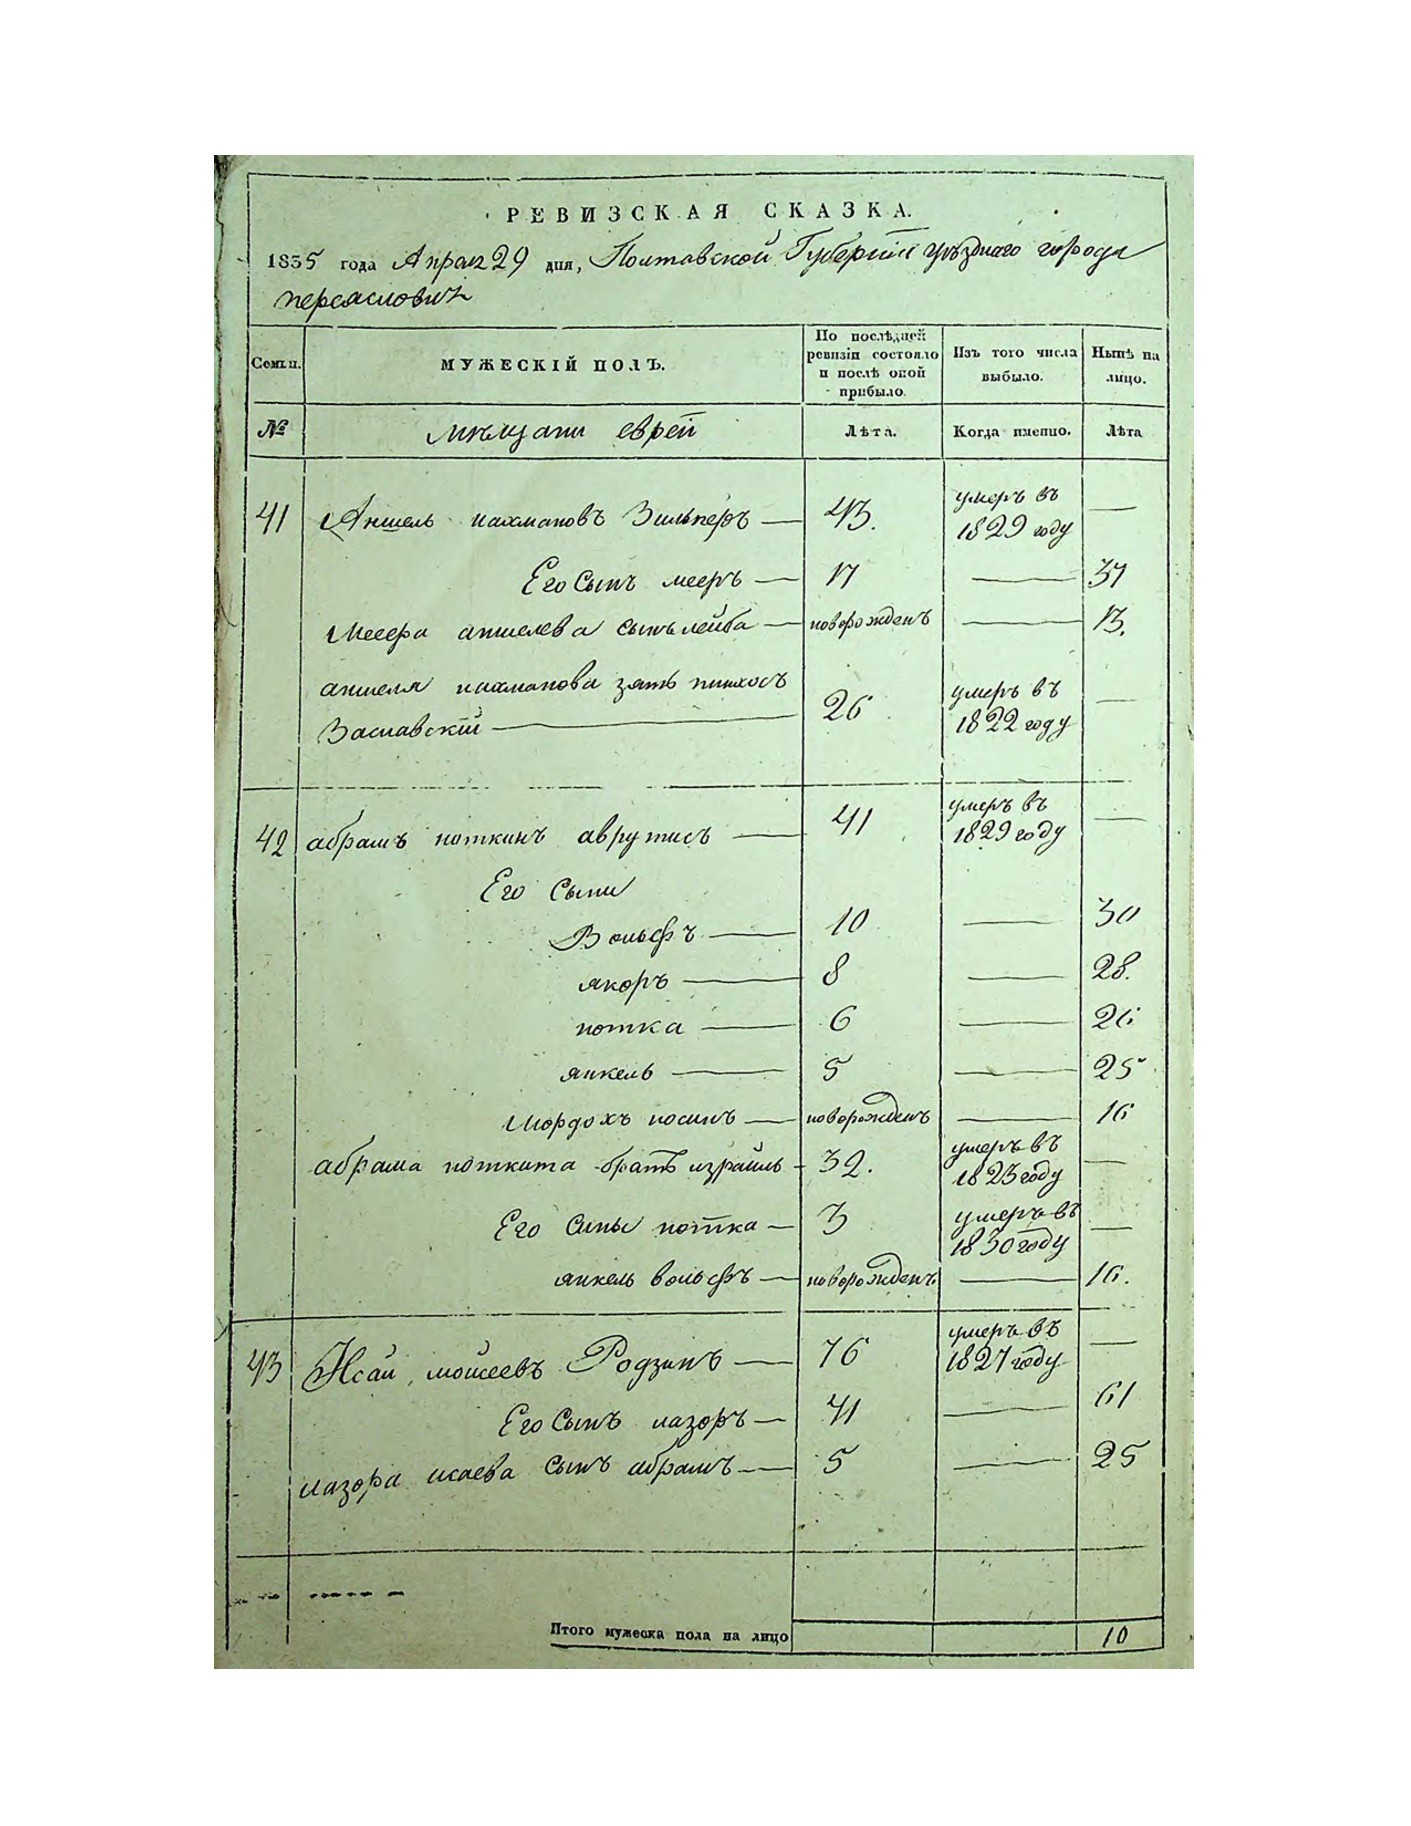 РЕВИЗСКАЯ СКАЗКА.
1835 года Апрел 29 дня, Полтавской Губернїи уѣзднаго города
переясловля
Семьи. МУЖЕСКІЙ ПОЛЪ. По послѣдней ревизіи состояло и послѣ оной прибыло. Изъ того числа выбыло. Нынѣ на лицо.
№ мѣщани еврей Лѣта. Когда именно. Лѣта
41 Аншель нахмановъ Зильперъ 43. умеръ въ 1829 году —
Его Сынъ мееръ 17 — 37
Меера аншелева сынъ лейба новорожденъ — 13.
аншеля нахманова зять пинхосъ
Заславскій 26 умеръ въ 1822 году —
42 абрамъ ноткинъ аврутисъ 41 умеръ въ 1829 году —
Его Сыни
Вольфъ 10 — 30
якоръ 8 — 28.
нотка 6 — 26
янкель 5 — 25
Мордохъ носинъ новорожденъ — 16
абрама ноткина братъ израиль 32. умеръ въ 1823 году —
Его Сыны нотка 3 умеръ въ 1830 году —
янкель вольфъ новорожденъ — 16.
43 Исай моисеевъ Родзинъ 76 умеръ въ 1827 году —
Его Сынъ лазоръ 41 — 61
лазора исаева Сынъ абрамъ 5 — 25
Итого мужеска пола на лицо 10